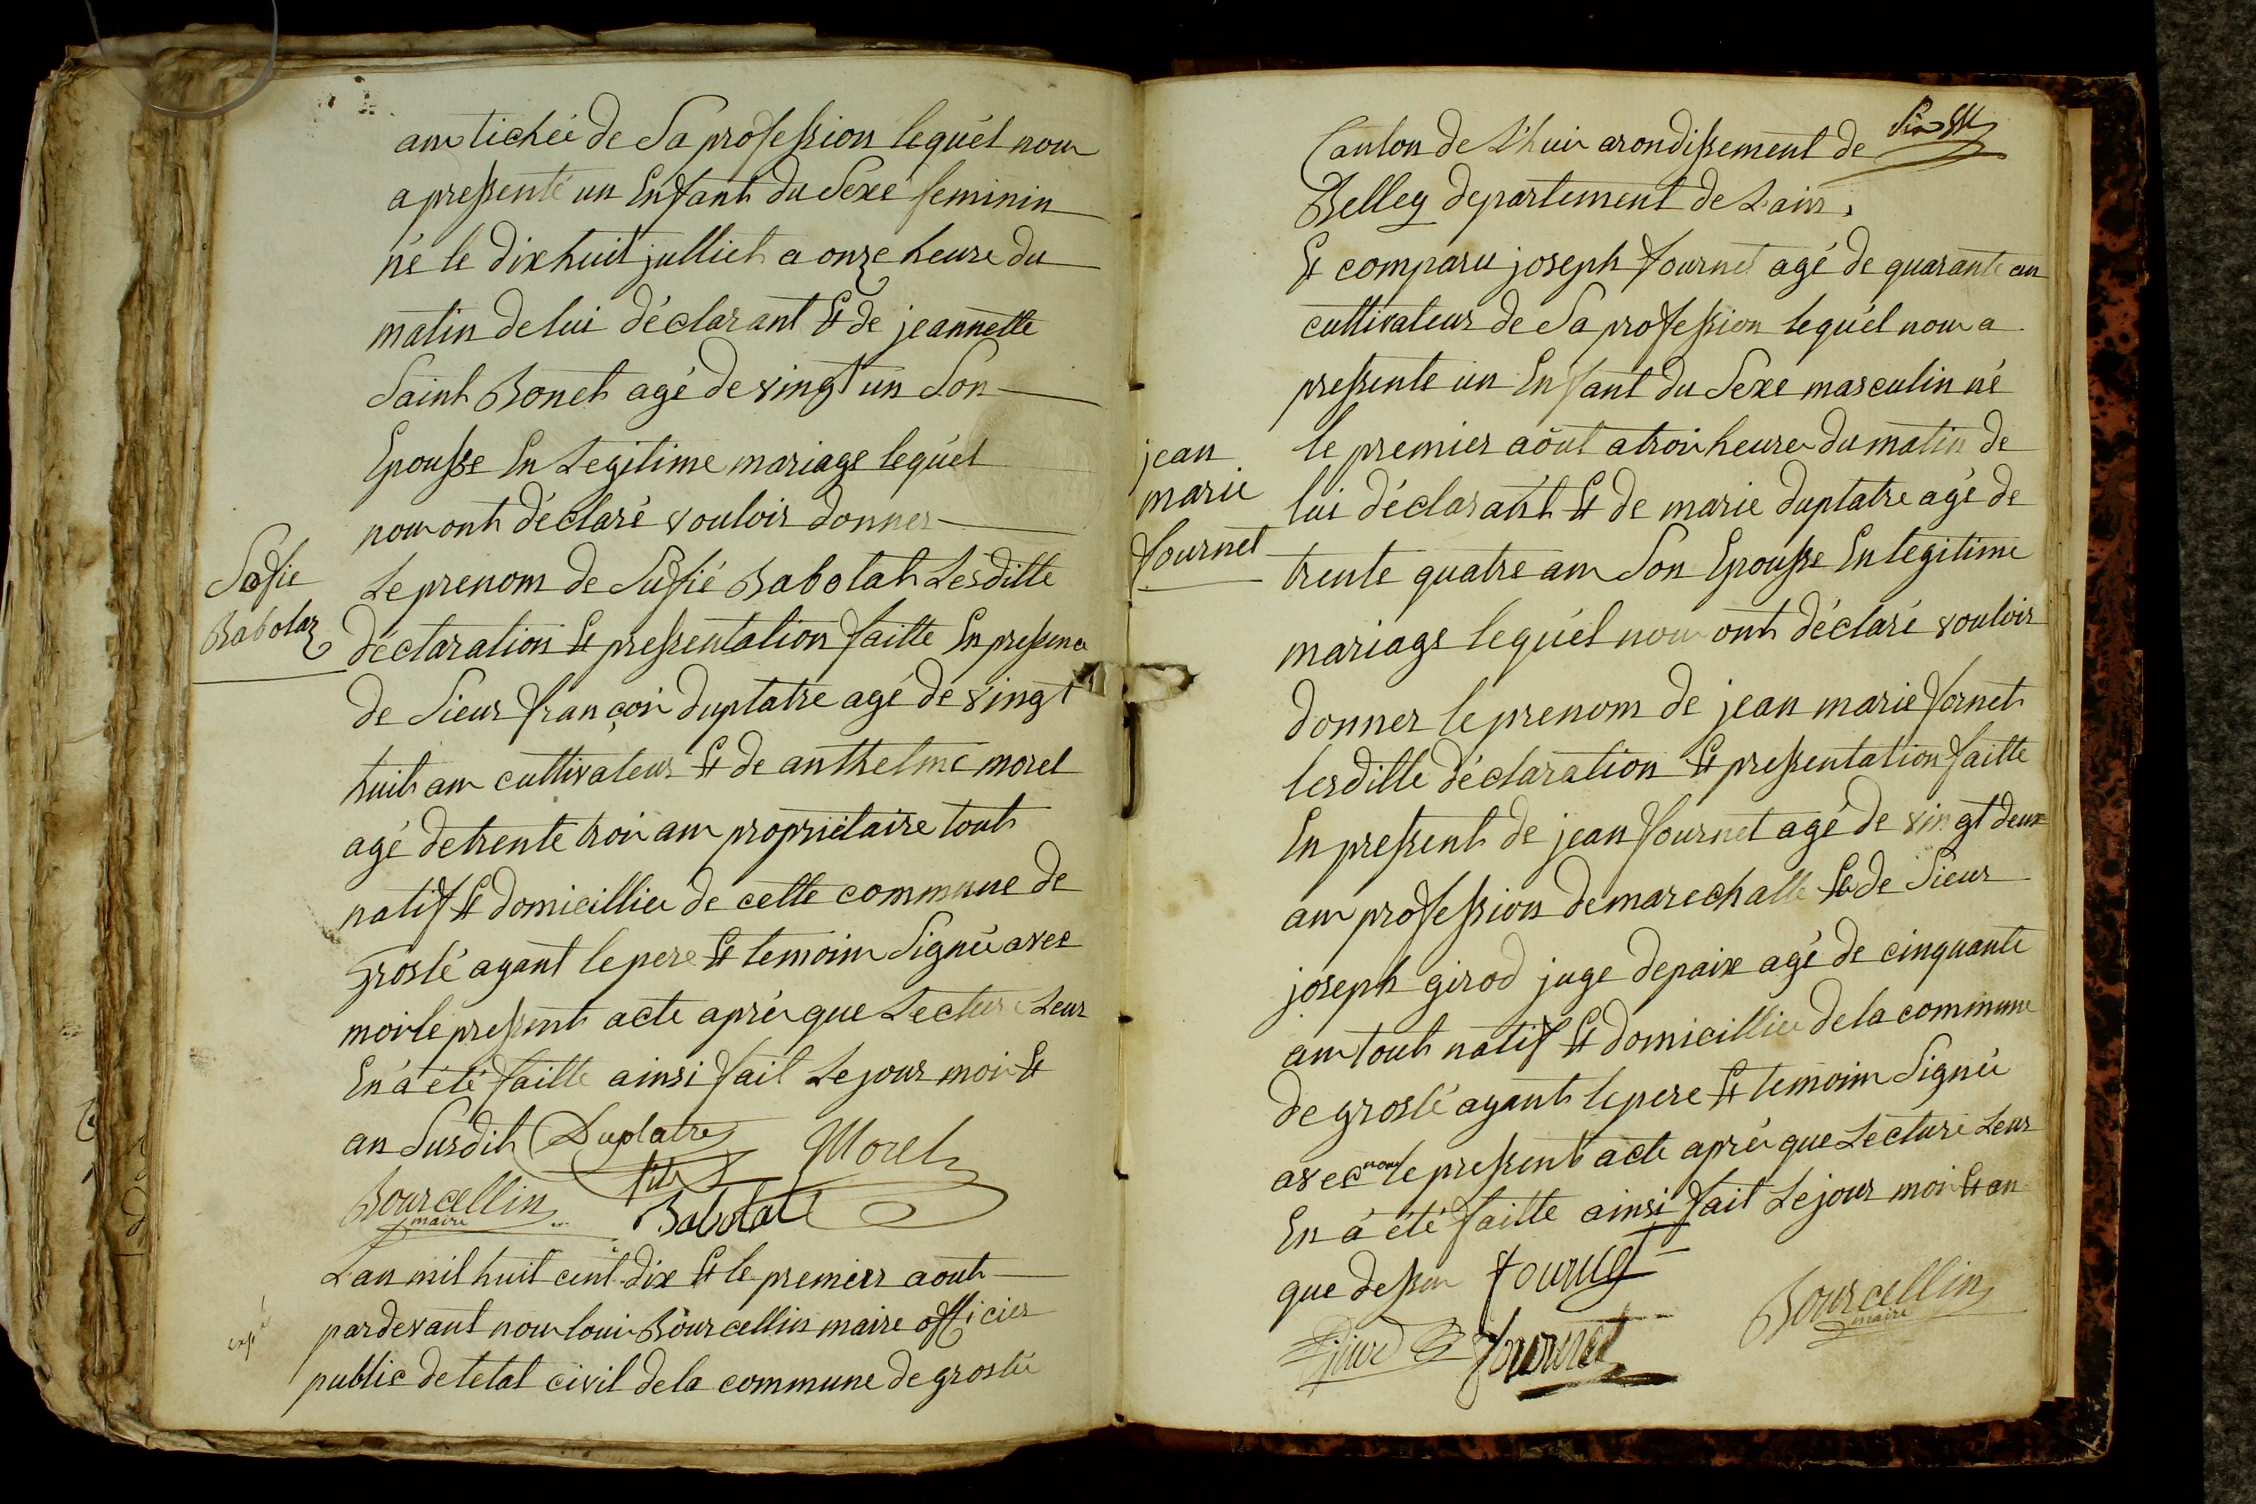 am tichée de Sa profession lequél nous
a pressenté un Enfant du Sexe feminin
né le dix huit julliet a onze heure du
matin de lui déclarant Et de jeannette
Saint Bonet agé de vingt un Son
Epousse En Legitime mariage lequel
nous ont déclaré vouloir donner
Sofie
Babolaz
Le prenom de Sufié Babolat Lesditte
déclaration Et pressentation faitte En pressence
de Sieur françois duplatre agé de vingt
huit ans cultivateur Et de anthelme morel
agé de trente trois ans propriétaire tout
natif Et domicillier de cette commune de
Groslé ayant le pere Et temoins Signée avec
moi le pressent acte aprés que Lecture Leur
En a été faitte ainsi fait Le jour mois Et
an Susdit Duplatre fils Morel
Bourcellin maire Babolat
L'an mil huit cent dix Et le premier aout
par devant nous louis Bourcellin maire officier
public de letat civil de la commune de groslée
Canton de L'huis arondissement de
Belley departement de Lain.
Et comparu joseph fournet agé de quarante an
cultivateur de Sa profession lequél nous a
pressente un Enfant du Sexe masculin né
jean
marie
fournet
le premier aôut a trois heures du matin de
lui déclarant Et de marie duplatre agé de
trente quatre ans Son Epousse En legitime
mariage lequél nous ont déclaré vouloir
donner le prenom de jean marie fornet
lesditte déclaration Et pressentation faitte
En pressent de jean fournet agé de vingt deux
ans profession de marechalle Et de Sieur
joseph girod juge de paix agé de cinquante
ans tout natif Et domicillier de la commune
de groslé ayant le pere Et temoins Signée
avec nous le pressent acte aprés que Lecture Leur
En a été faitte ainsi fait Le jour mois Et an
que dessus fournet
Girod fournet Bourcellin maire